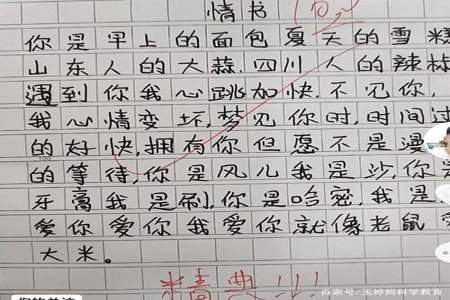 情书
你是早上的面包夏天的雪糕
山东人的大蒜.四川人的辣椒
遇到你我心跳加快.不见你,
我心情变坏,梦见你时,时间过
的好快,拥有你但愿不是漫
的等待,你是风儿我是沙,你
牙膏我是刷,你是哈密,我是
爱你爱你我爱你就像老鼠
大米。
精典!!!
百家号/玉婷妈科学教育